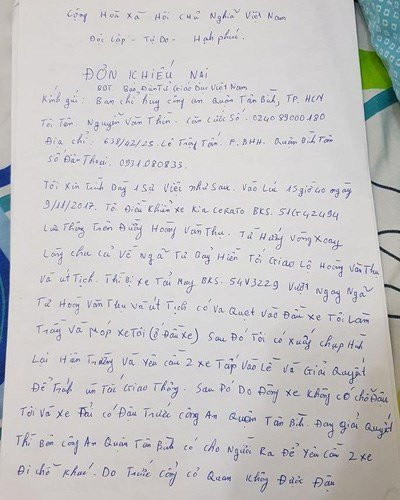 Cộng Hoà Xã Hội Chủ Nghĩa Việt Nam
Độc lập - Tự Do - Hạnh phúc.
ĐƠN KHIẾU NẠI
BĐT Báo Điện Tử Giáo Dục Việt Nam
Kính gửi: Ban chỉ huy công an Quận Tân Bình, TP. HCM
Tôi Tên. Nguyễn Văn Thìn. Căn Cước Số. 024089000180
Địa chỉ. 638/42/25. Lê Trọng Tấn. P. BHH. Quận Bình Tân
Số Điện Thoại. 0931.080833.
Tôi Xin Trình Bày 1 Sự Việc như Sau. Vào Lúc 15 giờ 40 ngày
9/11/2017. Tôi Điều Khiển xe Kia Cerato BKS. 51G42494
Lưu Thông Trên Đường Hoàng Văn Thụ. Từ Hướng Vòng Xoay
Lăng cha cả Về Ngã Tư Bảy Hiền Tới Giao Lộ Hoàng Văn Thụ
Và út Tịch. Thì Bị xe Tải Mang BKS. 54V3229 Vượt Ngang Ngã
Tư Hoàng Văn Thụ Và út Tịch có Va Quẹt Vào Đầu xe Tôi Làm
Trầy Và Móp xe Tôi (ở Đầu xe) Sau Đó Tôi có Xuống chụp Hình
Lại Hiện Trường Và Yêu cầu 2 xe Tấp Vào Lề Và Giải Quyết
Để Tránh ùn Tắc Giao Thông. Sau Đó Do Đông xe Không có chỗ Đậu
Tôi Và xe Tải có Đậu Trước Công An Quận Tân Bình. Đang giải Quyết
Thì Bên Công An Quận Tân Bình có cho Người Ra Để Yêu Cầu 2 xe
Đi chỗ Khác. Do Trước Cổng cơ Quan Không Được Đậu